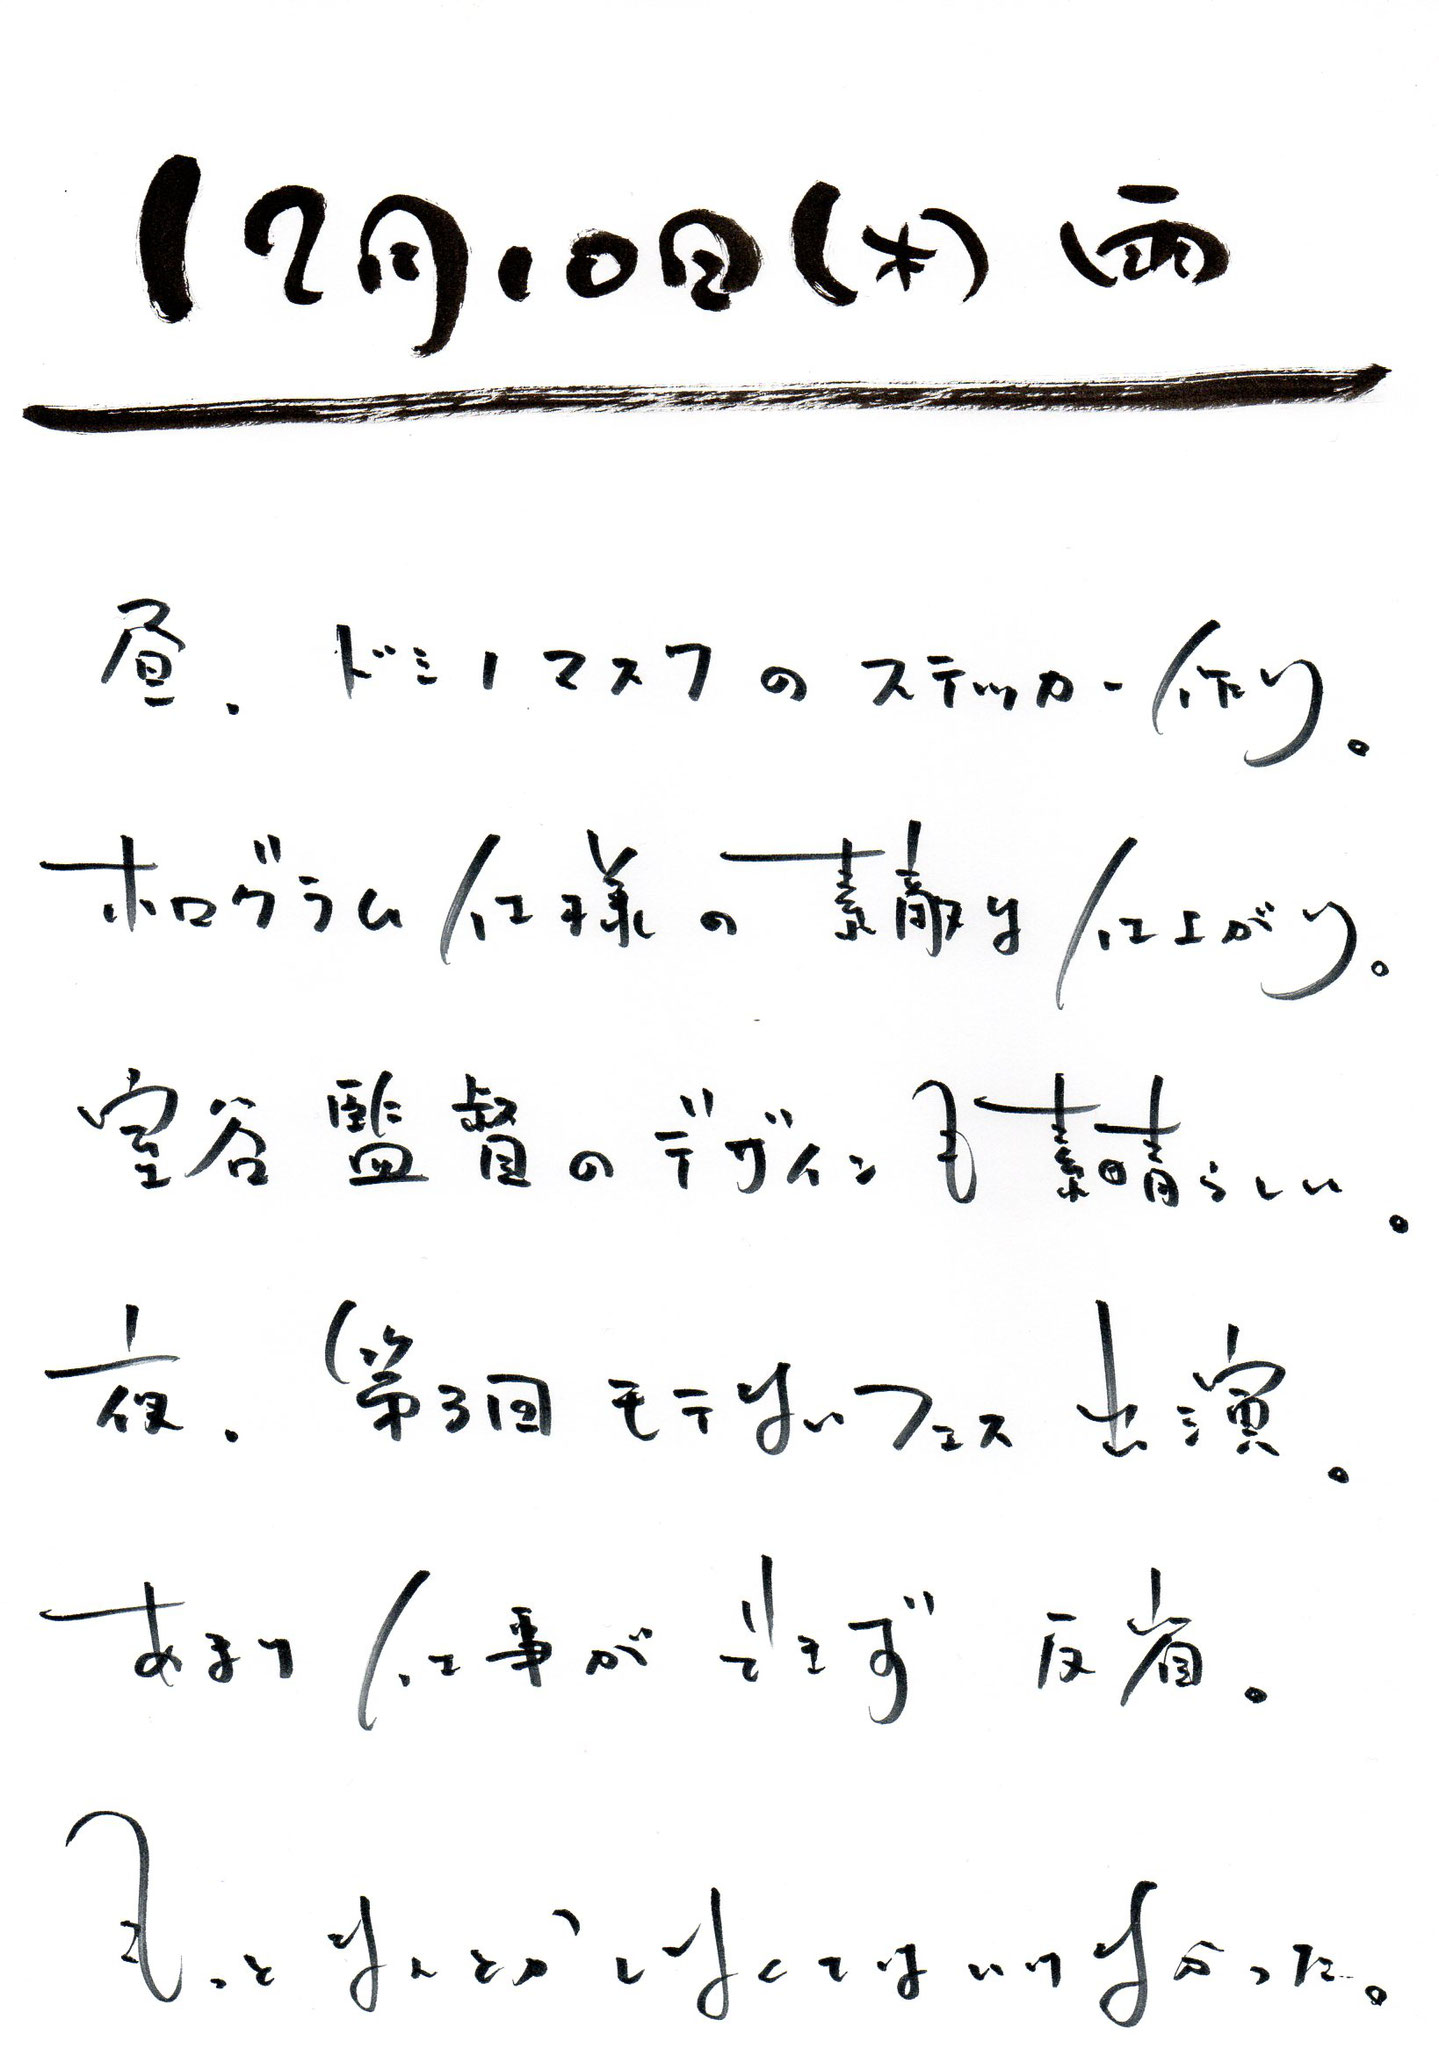 12月10日(木) 雨
昼、ドミノマスクのステッカー作り。
ホログラム仕様の素敵な仕上がり。
室谷監督のデザインも素晴らしい。
夜、第3回モテないフェス出演。
あまり仕事ができず 反省。
もっとなんとかしなくてはいけなかった。